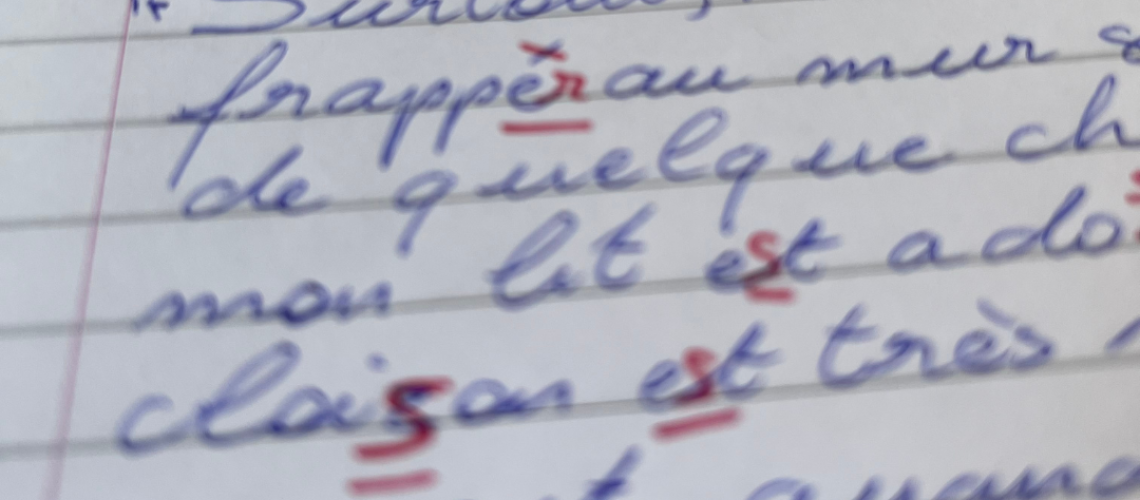 Surtout,
frappér au mur
de quelque ch
mon lit est ado
cloison est très
quand